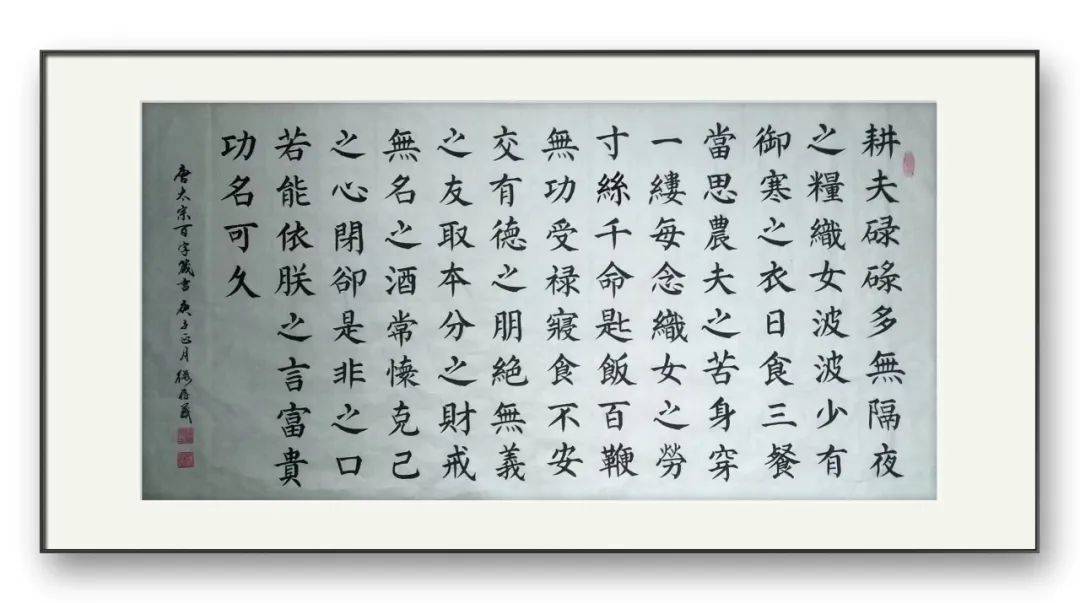 耕夫碌碌多無隔夜
之糧織女波波少有
御寒之衣日食三餐
當思農夫之苦身穿
一縷每念織女之勞
寸絲千命匙飯百鞭
無功受祿寢食不安
交有德之朋絕無義
之友取本分之財戒
無名之酒常懷克己
之心閉卻是非之口
若能依朕之言富貴
功名可久
唐太宗百字箴書庚子正月